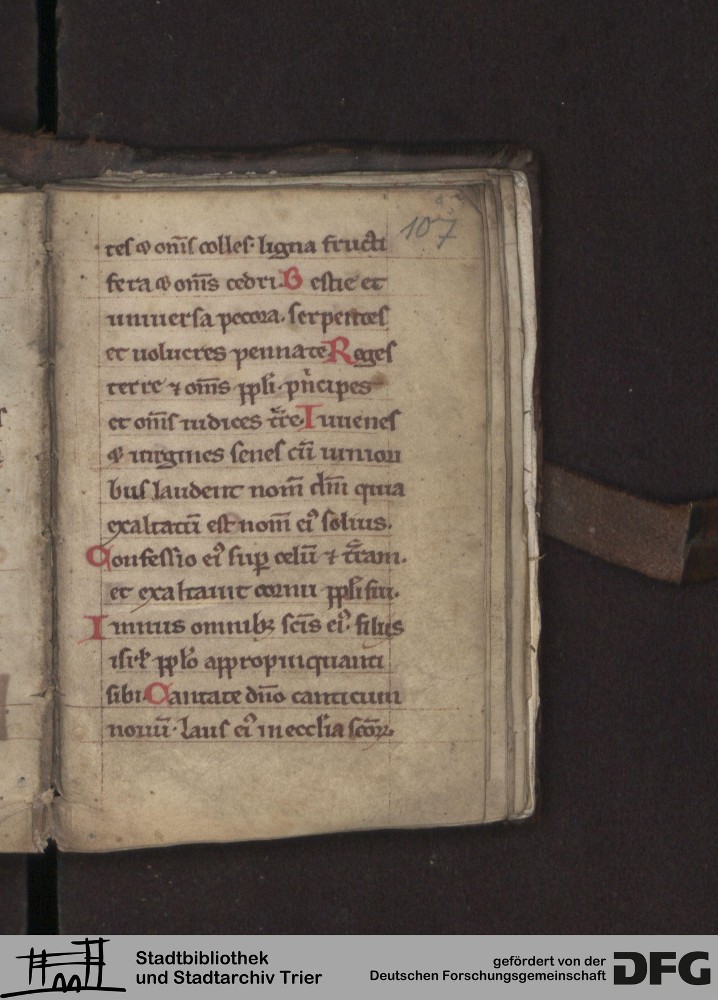 107
tes ⁊ om̅s colles· ligna fructi
fera ⁊ om̅s cedri. Bestie et
uniuersa pecora. serpentes
et uolucres pennate Reges
terre ⁊ om̅s ppl̅i. pͥncipes
et om̅s iudices tr̅e. Iuuenes
⁊ uirgines senes cu̅ iuniori
bus laudent nom̅ dn̅i quia
exaltatu̅ est nom̅ eiꝰ solius.
Confessio eiꝰ sup̅ celu̅ ⁊ tr̅am.
et exaltauit cornu ppl̅i sui.
Imnus omnibꝫ sc̅is eiꝰ. filiis
isrl̅ ppl̅o appropinquanti
sibi. Cantate dn̅o canticum
nouu̅· laus eiꝰ in eccl̅ia sc̅oꝝ.
Stadtbibliothek
und Stadtarchiv Trier
gefördert von der
Deutschen Forschungsgemeinschaft
DFG